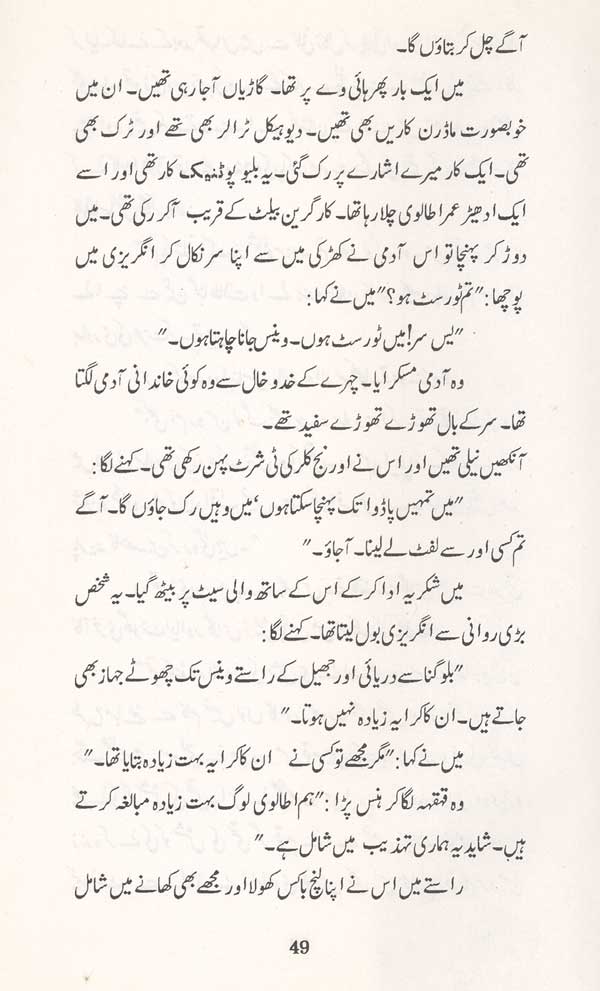 آگے چل کر بتاؤں گا۔
میں ایک بار پھر ہائی وے پر تھا۔ گاڑیاں آ جا رہی تھیں۔ ان میں
خوبصورت ماڈرن کاریں بھی تھیں۔ دیو ہیکل ٹرالر بھی تھے اور ٹرک بھی
تھی۔ ایک کار میرے اشارے پر رک گئی۔ یہ بلیو پوڈنٹیک کار تھی اور اسے
ایک ادھیڑ عمر اطالوی چلا رہا تھا۔ کار گرین بیلٹ کے قریب آ کر رکی تھی۔ میں
دوڑ کر پہنچا تو اس آدمی نے کھڑکی میں سے اپنا سر نکال کر انگریزی میں
پوچھا: "تم ٹورسٹ ہو؟" میں نے کہا:
"یس سر! میں ٹورسٹ ہوں۔ وینس جانا چاہتا ہوں۔"
وہ آدمی مسکرایا۔ چہرے کے خدوخال سے وہ کوئی خاندانی آدمی لگتا
تھا۔ سر کے بال تھوڑے تھوڑے سفید تھے۔
آنکھیں نیلی تھیں اور اس نے اورنج کلر کی ٹی شرٹ پہن رکھی تھی۔ کہنے لگا:
"میں تمہیں پاڈوا تک پہنچا سکتا ہوں، میں وہیں رک جاؤں گا۔ آگے
تم کسی اور سے لفٹ لے لینا۔ آ جاؤ۔"
میں شکریہ ادا کر کے اس کے ساتھ والی سیٹ پر بیٹھ گیا۔ یہ شخص
بڑی روانی سے انگریزی بول لیتا تھا۔ کہنے لگا:
"بلوگنا سے دریائی اور جھیل کے راستے وینس تک چھوٹے جہاز بھی
جاتے ہیں۔ ان کا کرایہ زیادہ نہیں ہوتا۔"
میں نے کہا: "مگر مجھے تو کسی نے ان کا کرایہ بہت زیادہ بتایا تھا۔"
وہ قہقہہ لگا کر ہنس پڑا: "ہم اطالوی لوگ بہت زیادہ مبالغہ کرتے
ہیں۔ شاید یہ ہماری تہذیب میں شامل ہے۔"
راستے میں اس نے اپنا لنچ باکس کھولا اور مجھے بھی کھانے میں شامل
49